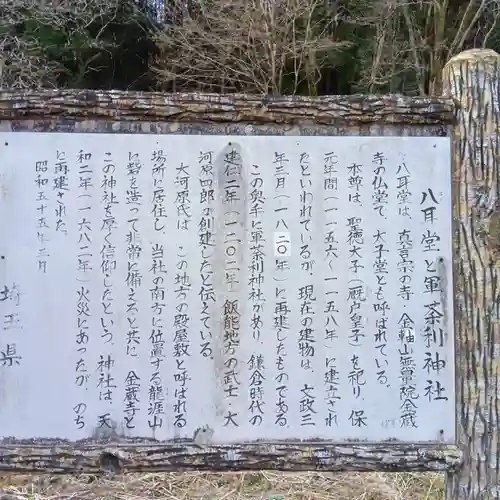 八耳堂と軍荼利神社
八耳堂は、真言宗の寺、金軸山無常院金蔵
寺の仏堂で、太子堂とも呼ばれている。
本尊は、聖徳太子（厩戸皇子）を祀り、保
元年間（一一五六〜一一五八年）に建立され
たといわれているが、現在の建物は、文政三
年三月（一八二〇年）に再建したものである。
この奥手に軍荼利神社があり、鎌倉時代の
建仁二年（一二〇二年）飯能地方の武士、大
河原四郎の創建したと伝えている。
大河原氏は、この地方の殿屋敷と呼ばれる
場所に居住し、当社の南方に位置する龍涯山
に砦を造って非常に備えると共に、金蔵寺と
この神社を厚く信仰したという。神社は、天
和二年（一六八二年）火災にあったが、のち
に再建された。
昭和五十五年三月
埼玉県